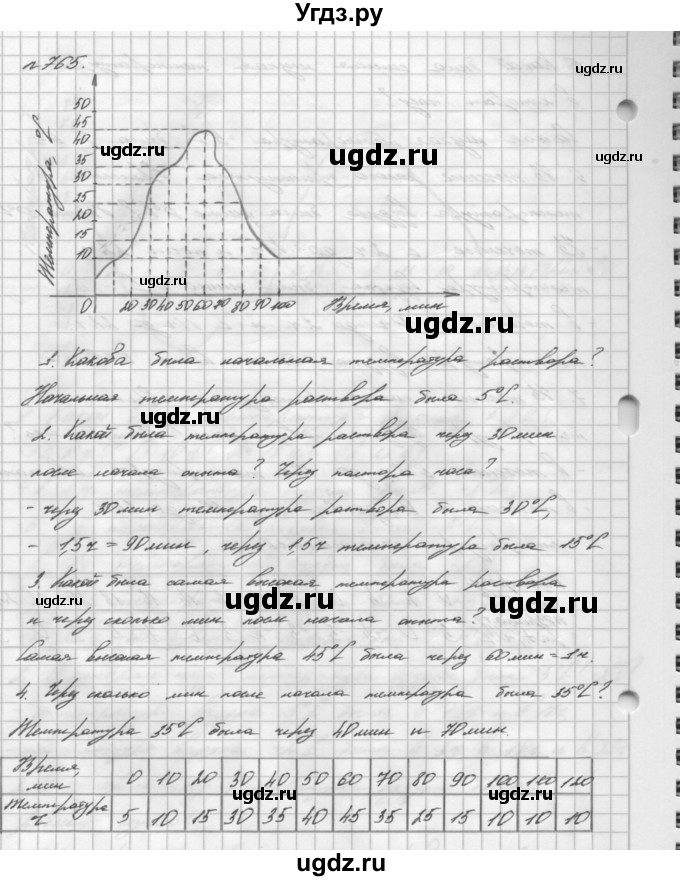 Угдз.ру
№765.
Температура, °C
50
45
40
35
30
25
20
15
10
0
20 30 40 50 60 70 80 90 100
Время, мин
1. Какова была начальная температура раствора?
Начальная температура раствора была 5°C.
2. Какой была температура раствора через 30 мин
после начала опыта? Через полтора часа?
- через 30 мин температура раствора была 30°C,
- 1,5ч = 90 мин, через 1,5ч температура была 15°C
3. Какой была самая высокая температура раствора
и через сколько мин после начала опыта?
Самая высокая температура 45°C была через 60 мин = 1ч.
4. Через сколько мин после начала температура была 35°C?
Температура 35°C была через 40 мин и 70 мин.
Время, мин 0 10 20 30 40 50 60 70 80 90 100 110 120
Температура °C 5 10 15 30 35 40 45 35 25 15 10 10 10
ugdz.ru
ugdz.ru
ugdz.ru
ugdz.ru
ugdz.ru
ugdz.ru
ugdz.ru
ugdz.ru
ugdz.ru
ugdz.ru
ugdz.ru
ugdz.ru
ugdz.ru
ugdz.ru